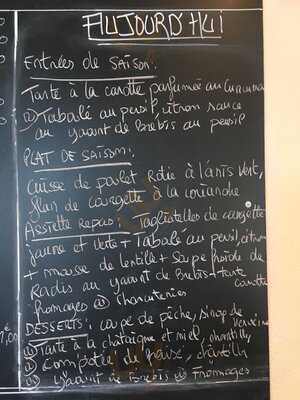 AUJOURD'HUI
Entrées de SAISON:
Tarte à la carotte parfumée au Curcuma
ⓤ Tabalé au persil, citron sauce
au yaourt de Brebis au persil
PLAT DE SAISON:
Cuisse de poulet Rotie à l'anis vert,
flan de courgette à la coriandre
Assiette Repas: Tagliatelles de courgette
jaune et verte + Tabalé au persil, citron
+ mousse de lentille + Soupe froide de
Radis au yaourt de Brebis + tarte
carotte
fromages ⓤ charcuteries
DESSERTS: coupe de pêche, sirop de
Verveine
ⓤ Tarte à la chataigne et miel, chantilly,
ⓤ Compotée de fraise, chantilly
ⓤ yaourt de Brebis ⓤ Fromages
7,00